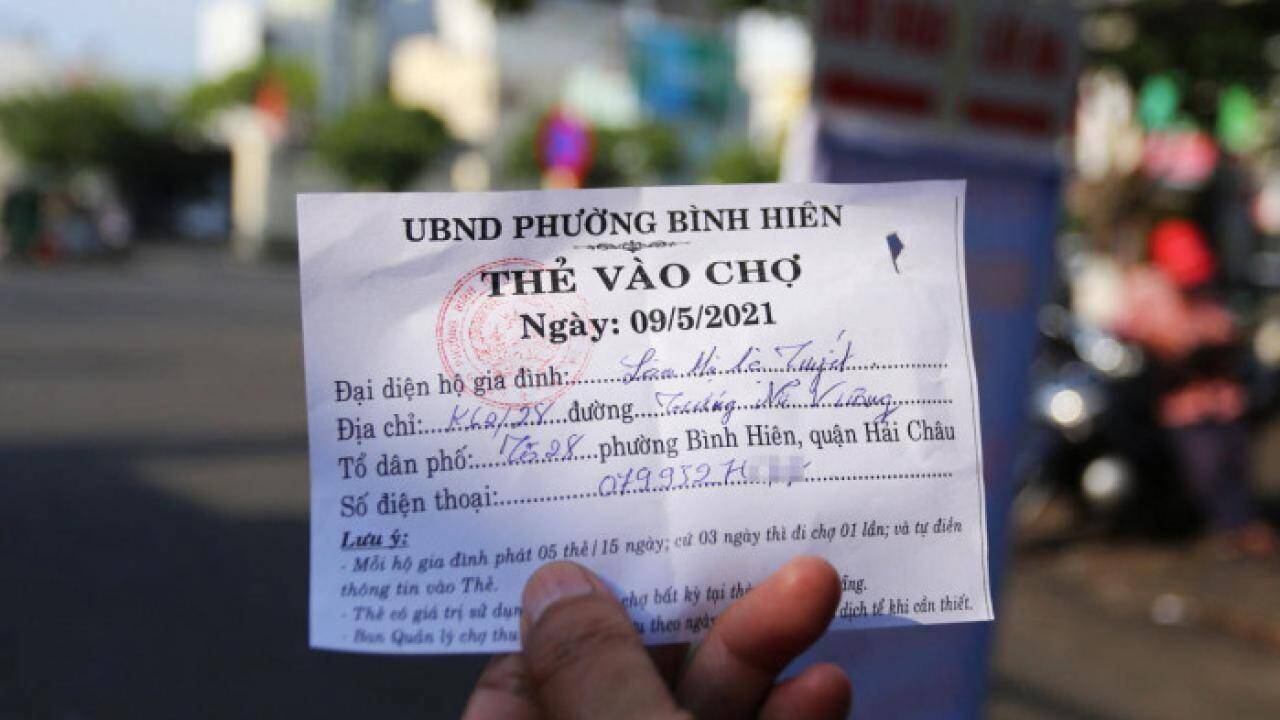 UBND PHƯỜNG BÌNH HIÊN
THẺ VÀO CHỢ
Ngày: 09/5/2021
Đại diện hộ gia đình: Tuyết
Địa chỉ: K60/28 đường Trưng Nữ Vương
Tổ dân phố: Tổ 28 phường Bình Hiên, quận Hải Châu
Số điện thoại: 0799527
Lưu ý:
- Mỗi hộ gia đình phát 05 thẻ/15 ngày; cứ 03 ngày thì đi chợ 01 lần; và tự điền
thông tin vào Thẻ.
- Thẻ có giá trị sử dụng chợ bất kỳ tại
- Ban Quản lý chợ thu theo ngày dịch tễ khi cần thiết.